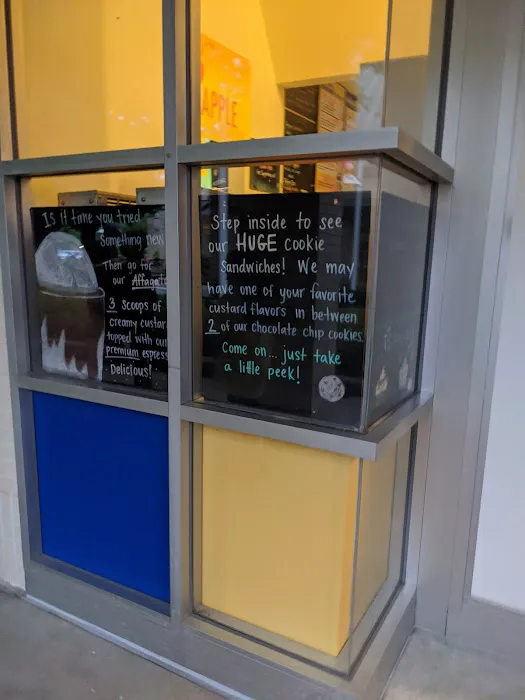 APPLE
Is it time you tried
Something new
Then go for
our Affagato
3 scoops of
creamy custar
topped with our
premium espress
Delicious!
Step inside to see
our HUGE cookie
Sandwiches! We may
have one of your favorite
custard flavors in between
2 of our chocolate chip cookies
Come on... just take
a little peek!